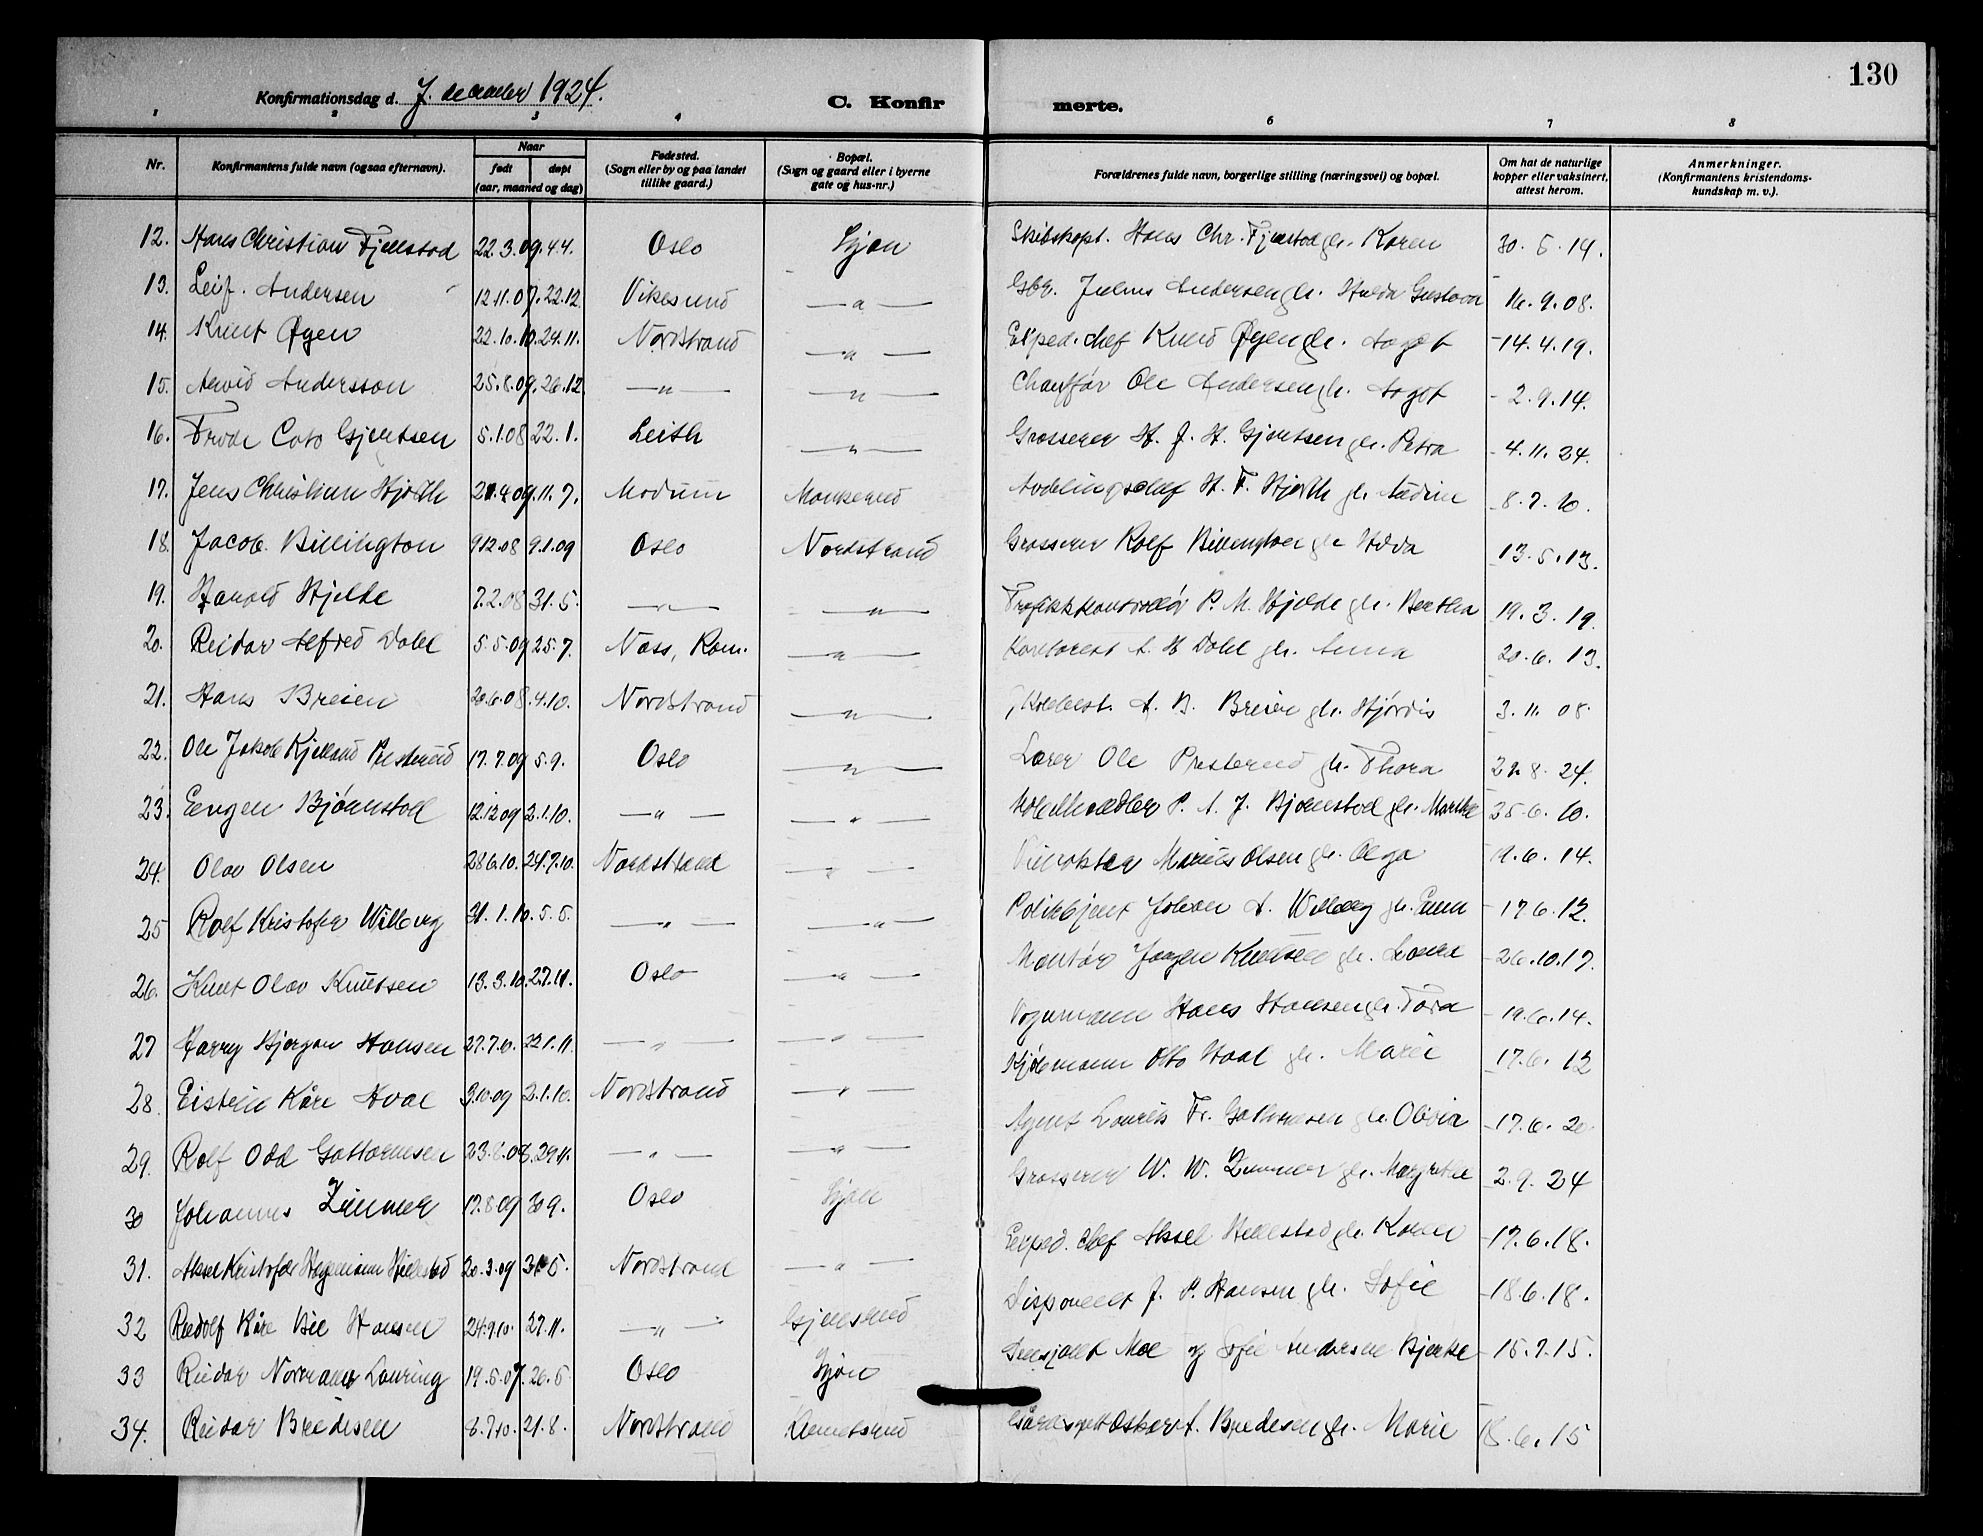 130
Konfirmationsdag d. 7. december 1924.
C. Konfir merte.
1 2 3 4 6 7 8
Nr. Konfirmantens fulde navn (ogsaa efternavn). Naar født døpt (aar, maaned og dag) Fødested. (Sogn eller by og paa landet tillike gaard.) Bopæl. (Sogn og gaard eller i byerne gate og hus-nr.) Forældrenes fulde navn, borgerlige stilling (næringsvei) og bopæl. Om hat de naturlige kopper eller vaksinert, attest herom. Anmerkninger. (Konfirmantens kristendoms-kundskap m. v.).
12. Hans Christian Fjeldstad 22.3.09. 4.4. Oslo Ljan Skibskapt. Hans Chr. Fjeldstad gh. Karen 30.5.14.
13. Leif Andersen 12.11.07. 22.12. Vikesund —"— Gbr. Julius Andersen gh. Hulda Gustava 16.9.08.
14. Knut Øyen 22.10.10. 24.11. Nordstrand —"— Exped. chef Knud Øyen gh. Aagot 14.4.19.
15. Arvid Andersson 25.8.09. 26.12. —"— —"— Chauffør Ole Andersen gh. Aagot 2.9.14.
16. Frode Cato Gjertsen 5.1.08 22.1. Leith —"— Grosserer H. J. H. Gjertsen gh. Petra 4.11.24.
17. Jens Christian Hjorth 11.7. Modum Munkerud Avdelingschef H. F. Hjorth gh. 8.7.10.
18. Jacob Billington 9.12.08 9.1.09 Oslo Nordstrand Grosserer Rolf Billington gh. 13.5.13.
19. Harald Hjelde 7.2.08 31.5. —"— —"— Trafikkkontrollør P. M. Hjelde gh. Bertha 19.3.19.
20. Reidar Alfred Dahl 5.5.09 25.7. Næss, Rom. —"— Kontorest A. H. Dahl gh. Anna 20.6.13.
21. Hans Breien 20.6.08. 4.10. Nordstrand —"— A. B. Breien gh. Hjördis 3.11.08.
22. Ole Jakob Kjelland Presterud 17.7.09 5.9. Oslo —"— Lærer Ole Presterud gh. Thora 8.24.
23. Eugen Bjørnstad 12.12.09 2.1.10. —"— —"— P. A. J. Bjørnstad gh. Marthe 25.6.10.
24. Olav Olsen 28.6.10. 24.7.10. Nordstrand —"— Marius Olsen gh. Olga 19.6.14.
25 Rolf Kristofer Willberg 31.1.10. 5.5. —"— —"— Politibjent Johan A. Willberg gh. 17.6.12.
26. Knut Olav Knutsen 13.3.10. 27.11. Oslo —"— Montør Jørgen Knutsen gh. 26.10.17.
27 Harry Bjørgan Hansen 27.7.10. 22.1.11. —"— —"— Vognmann Hans Hansen gh. Tora 19.6.14.
28. Eistein Kåre Hval 3.10.09 2.1.10. Nordstrand —"— Kjøbmann Otto Hval gh. Marie 17.6.12
29. Rolf Odd Guttormsen 23.8.08. 29.11. —"— —"— Agent Laurits Fr. Guttormsen gh. Olivia 17.6.20.
30 Johannes Zimmer 17.8.09 30.9. Oslo Ljan Grosserer W. W. Zimmer gh. Margrethe 2.9.24
31. Aksel Kristofer Hellestad 20.3.09 31.5. Nordstrand —"— Exped. chef Aksel Hellestad gh. Karen 17.6.18.
32 Rudolf Kåre Hansen 24.9.10. 27.11. —"— Gjersrud Disponent J. P. Hansen gh. Sofie 18.6.18.
33 Reidar Normann Lauring 19.5.07. 26.5 Oslo Ljan Moe og Sofie Andersen Bjerke 15.7.15.
34. Reidar Bredesen 8.7.10. 21.8. Nordstrand Oskar A. Bredesen gh. Marie 18.6.15